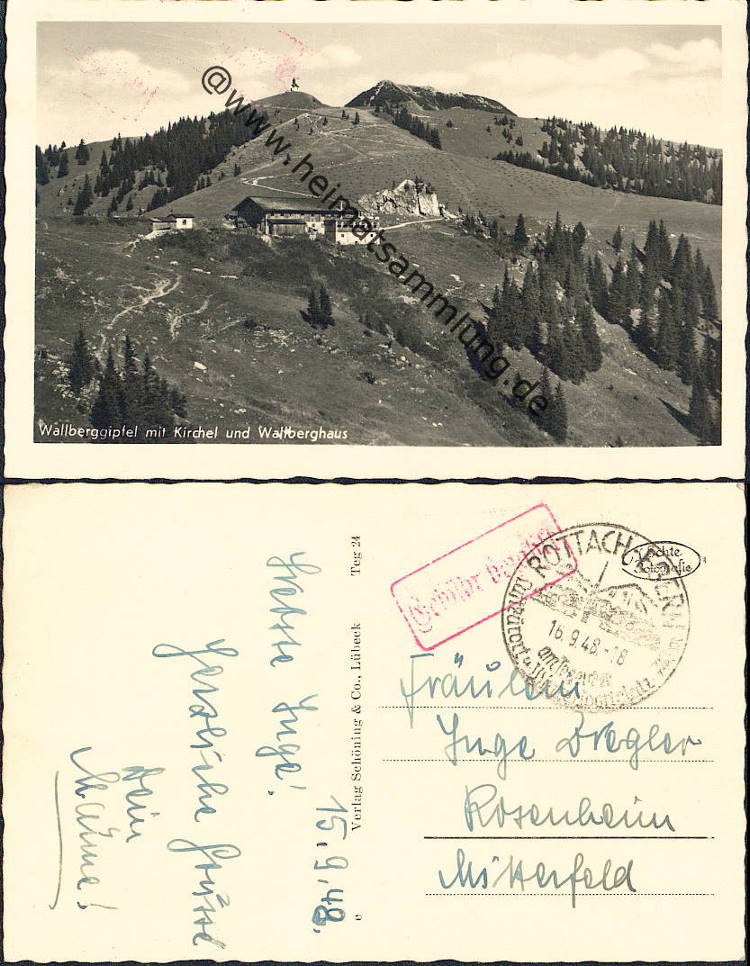 @www.heimatsammlung.de
Wallberggipfel mit Kirchel und Wallberghaus
Gebühr bezahlt
ROTTACH-EGERN
16.9.48.-18
am Tegernsee
Echte
Fotografie
Teg 24
Verlag Schöning & Co., Lübeck
e
15.9.48.
Liebste Inge!
Herzliche Grüsse
Dein
Fräulein
Inge Dregler
Rosenheim
Mitterfeld